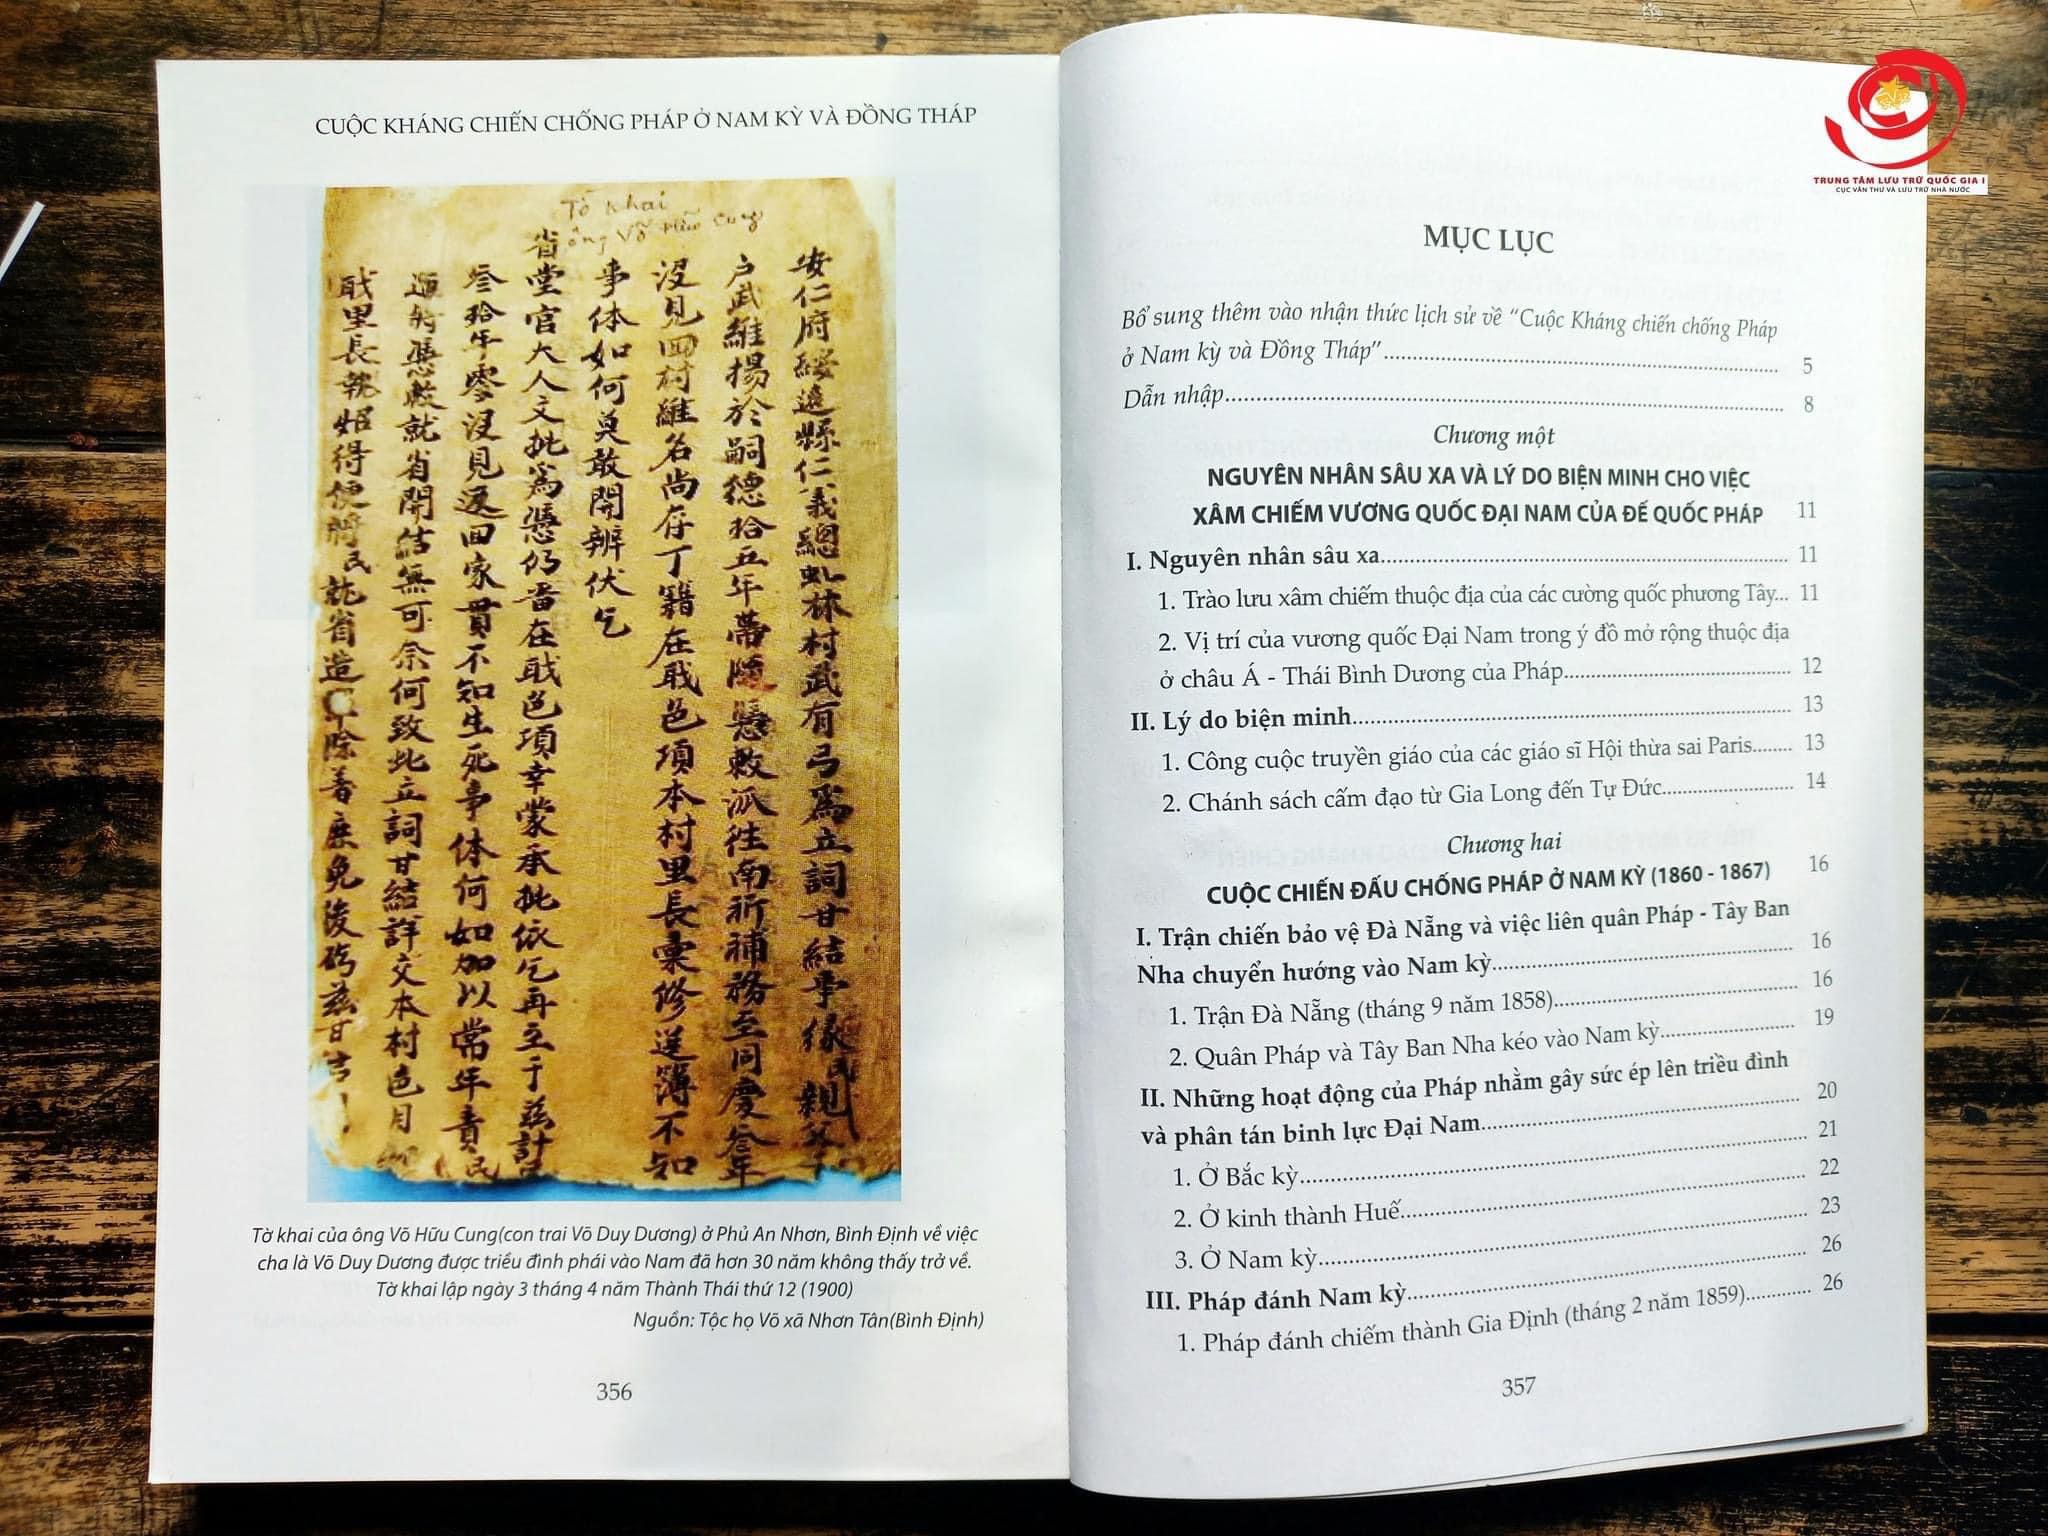 CUỘC KHÁNG CHIẾN CHỐNG PHÁP Ở NAM KỲ VÀ ĐỒNG THÁP
Tờ khai
ông Võ Hữu Cung
安仁府綏遠縣仁義總虬林村武有弓為立詞甘結事緣民親父
户武維揚於嗣德拾五年帶隨憑敕派往南圻補務至同慶叁年
没見四村維名尚存丁籍在戢邑項本村里長稟修送簿不知
事体如何莫敢開辨伏乞
省堂官大人文批爲憑仍旹在戢邑項幸蒙承批依乞再至于茲計
叁拾年零没見返回家貫不知生死事体何如加以常年責民
憑敕就省開結無可奈何致此立詞甘結詳交本村邑月
戢里長執炤得便將民就省造 除著庶免後 茲甘
Tờ khai của ông Võ Hữu Cung(con trai Võ Duy Dương) ở Phủ An Nhơn, Bình Định về việc
cha là Võ Duy Dương được triều đình phái vào Nam đã hơn 30 năm không thấy trở về.
Tờ khai lập ngày 3 tháng 4 năm Thành Thái thứ 12 (1900)
Nguồn: Tộc họ Võ xã Nhơn Tân(Bình Định)
356
TRUNG TÂM LƯU TRỮ QUỐC GIA I
CỤC VĂN THƯ VÀ LƯU TRỮ NHÀ NƯỚC
MỤC LỤC
Bổ sung thêm vào nhận thức lịch sử về "Cuộc Kháng chiến chống Pháp
ở Nam kỳ và Đồng Tháp"........ 5
Dẫn nhập........ 8
Chương một
NGUYÊN NHÂN SÂU XA VÀ LÝ DO BIỆN MINH CHO VIỆC
XÂM CHIẾM VƯƠNG QUỐC ĐẠI NAM CỦA ĐẾ QUỐC PHÁP 11
I. Nguyên nhân sâu xa........ 11
1. Trào lưu xâm chiếm thuộc địa của các cường quốc phương Tây... 11
2. Vị trí của vương quốc Đại Nam trong ý đồ mở rộng thuộc địa
ở châu Á - Thái Bình Dương của Pháp........ 12
II. Lý do biện minh........ 13
1. Công cuộc truyền giáo của các giáo sĩ Hội thừa sai Paris........ 13
2. Chánh sách cấm đạo từ Gia Long đến Tự Đức........ 14
Chương hai
CUỘC CHIẾN ĐẤU CHỐNG PHÁP Ở NAM KỲ (1860 - 1867) 16
I. Trận chiến bảo vệ Đà Nẵng và việc liên quân Pháp - Tây Ban
Nha chuyển hướng vào Nam kỳ........ 16
1. Trận Đà Nẵng (tháng 9 năm 1858)........ 16
2. Quân Pháp và Tây Ban Nha kéo vào Nam kỳ........ 19
II. Những hoạt động của Pháp nhằm gây sức ép lên triều đình
và phân tán binh lực Đại Nam........ 20
1. Ở Bắc kỳ........ 21
2. Ở kinh thành Huế........ 22
3. Ở Nam kỳ........ 23
III. Pháp đánh Nam kỳ........ 26
1. Pháp đánh chiếm thành Gia Định (tháng 2 năm 1859)........ 26
357